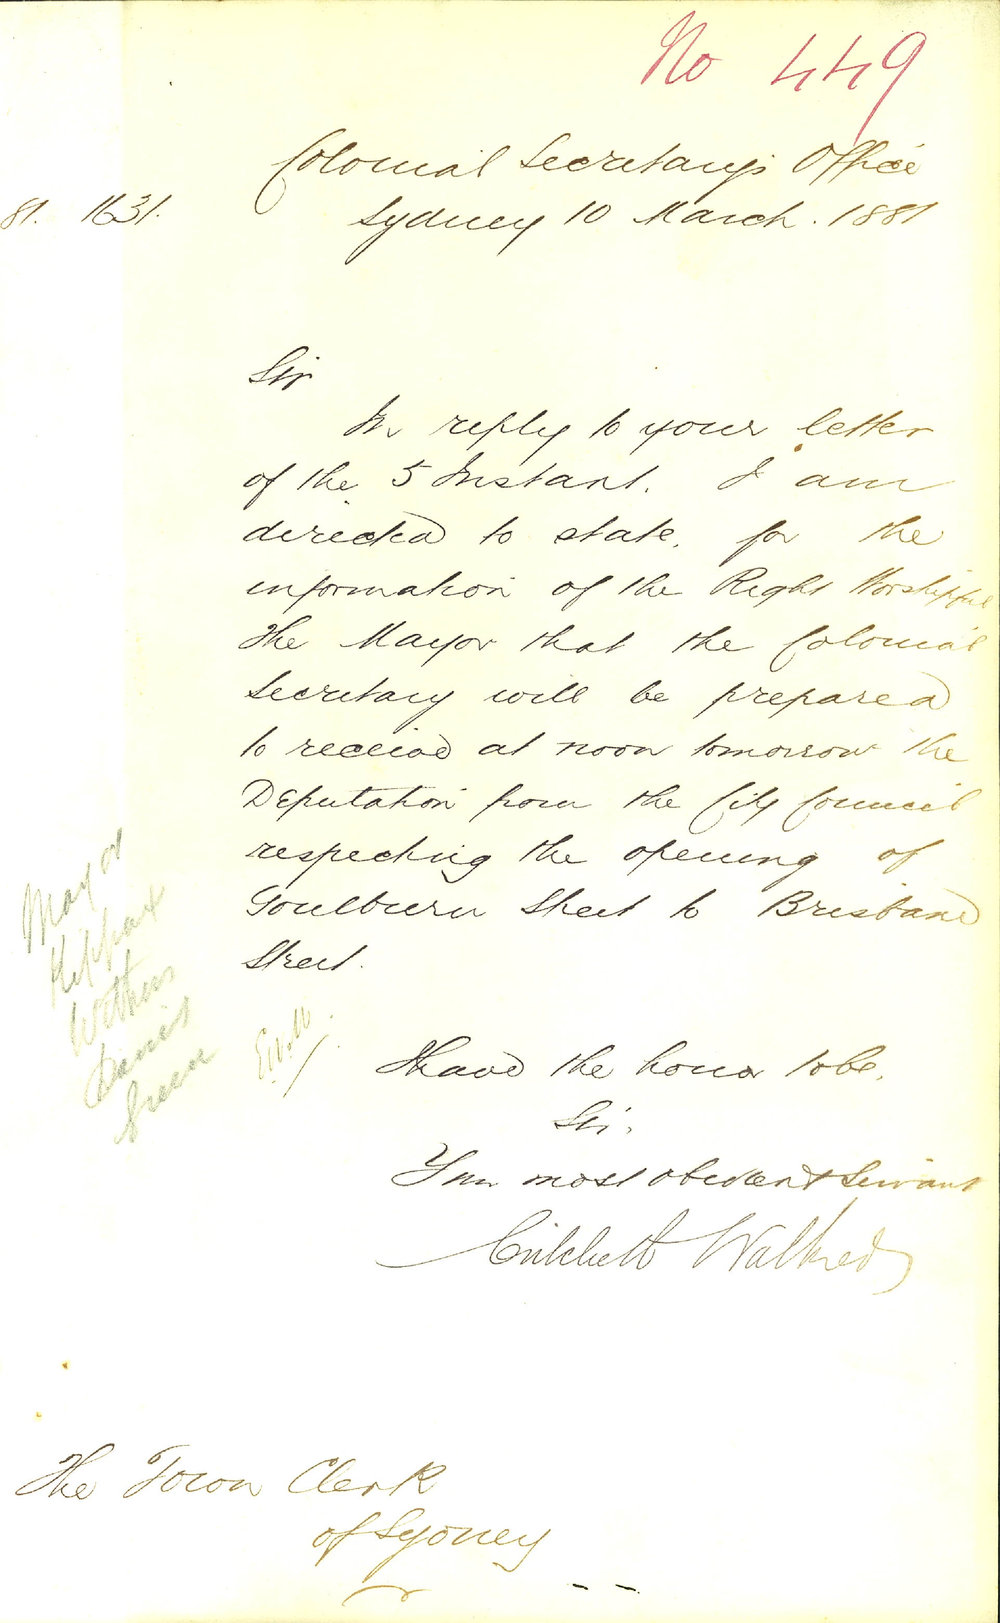 No 449
Colonial Secretary's Office
81. 1631.
Sydney 10 March. 1881
Sir
In reply to your letter
of the 5 Instant. I am
directed to state, for the
information of the Right Worshipful
The Mayor that the Colonial
Secretary will be prepared
to receive at noon tomorrow the
Deputation from the City Council
respecting the opening of
Goulburn Street to Brisbane
Street.
Mayor
Kippax
Withers
Davis
Green
I have the honor to be,
Sir,
Your most obedient Servant
Critchett Walker
The Town Clerk
of Sydney